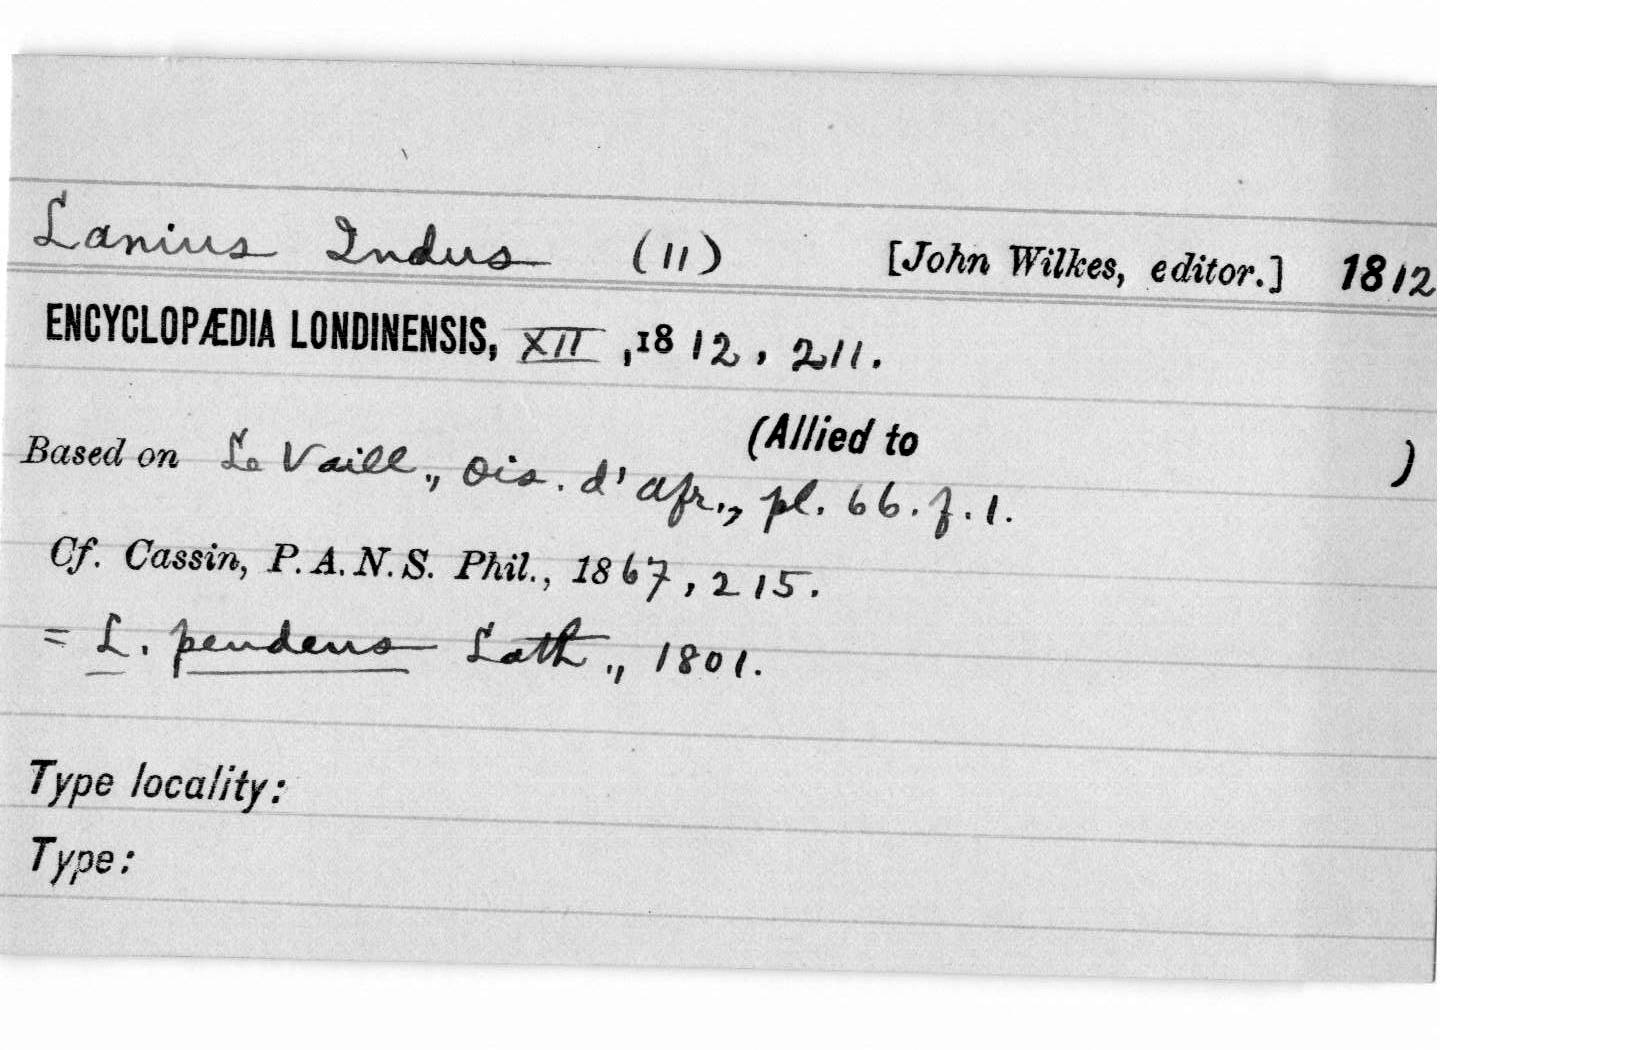 Lanius Indus (11) [John Wilkes, editor.] 1812
ENCYCLOPÆDIA LONDINENSIS, XII, 1812, 211.
(Allied to )
Based on Le Vaill., Ois. d'Afr., pl. 66. f. 1.
Cf. Cassin, P. A. N. S. Phil., 1867, 215.
= L. pendens Lath., 1801.
Type locality:
Type: